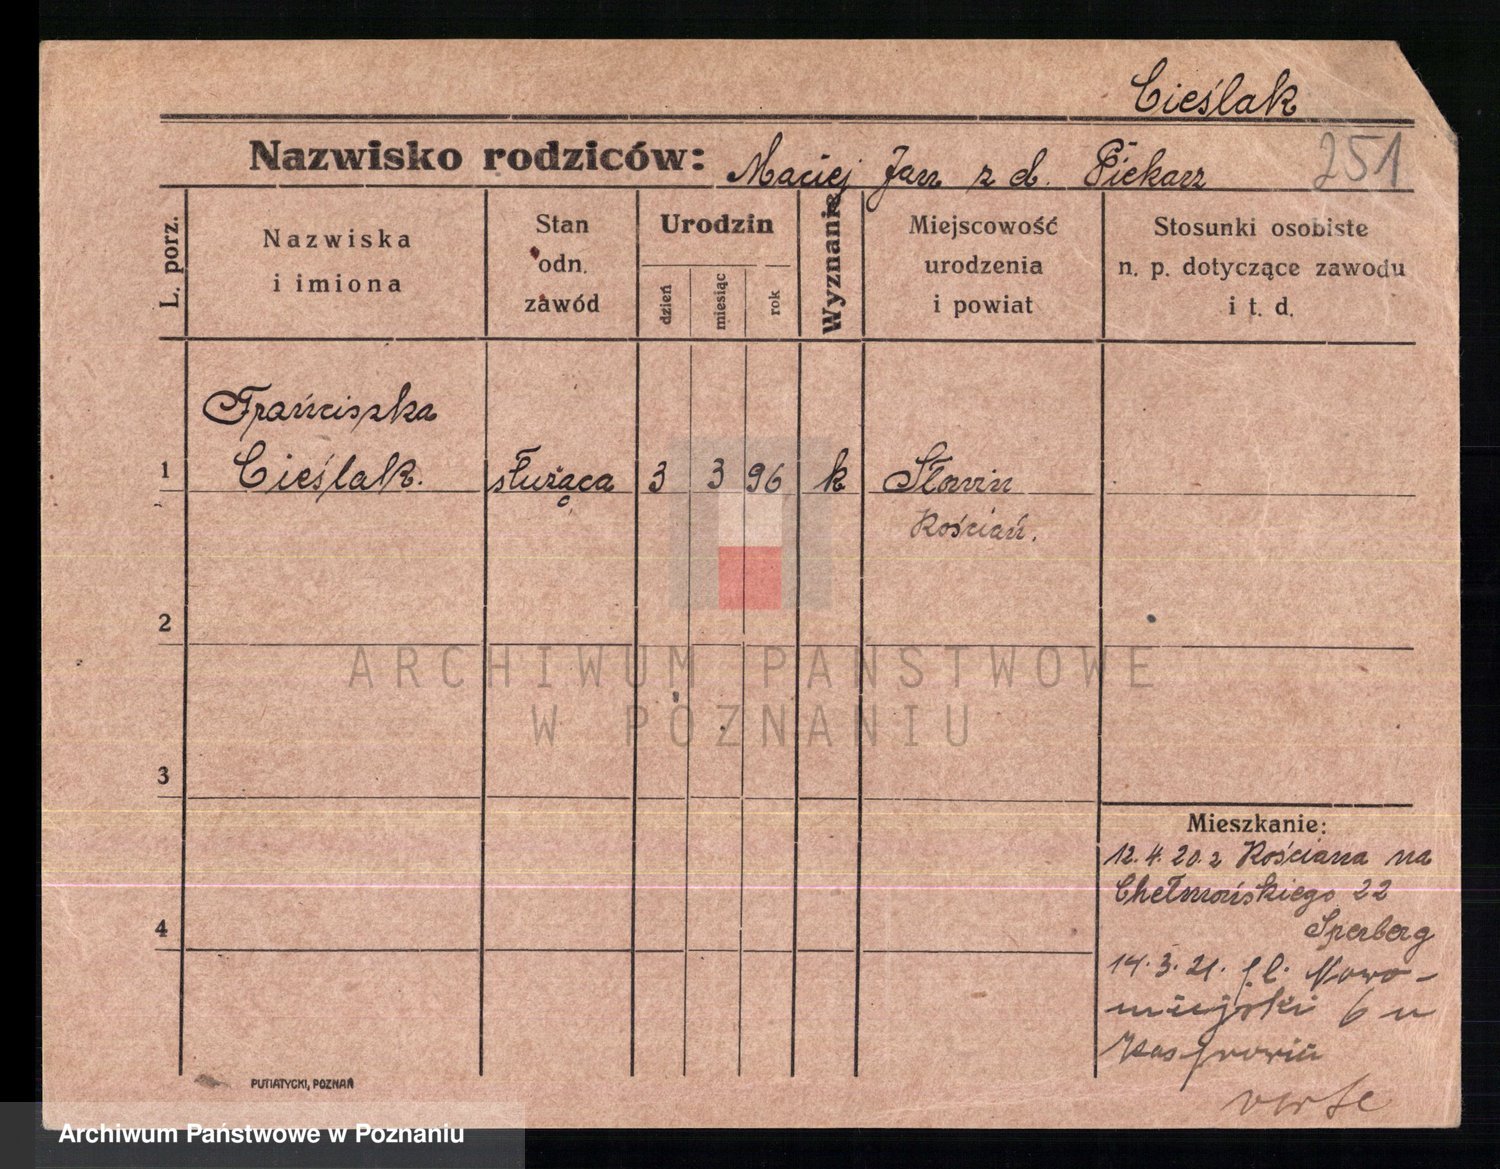 Cieślak
Nazwisko rodziców: Maciej Jan z d. Piekarz 251
L. porz.
Nazwiska
i imiona
Stan
odn.
zawód
Urodzin
dzień
miesiąc
rok
Wyznanie
Miejscowość
urodzenia
i powiat
Stosunki osobiste
n. p. dotyczące zawodu
i t. d.
Franciszka
1 Cieślak. służąca 3 3 96 k Słonin
Kościan.
2
3
4
Mieszkanie:
12.4.20. z Kościana na
Chełmońskiego 22
Sperberg
14.3.21. pl. Nowo-
miejski 6 u
Kasprowiu
verte
PUTIATYCKI, POZNAŃ
ARCHIWUM PAŃSTWOWE
W POZNANIU
Archiwum Państwowe w Poznaniu